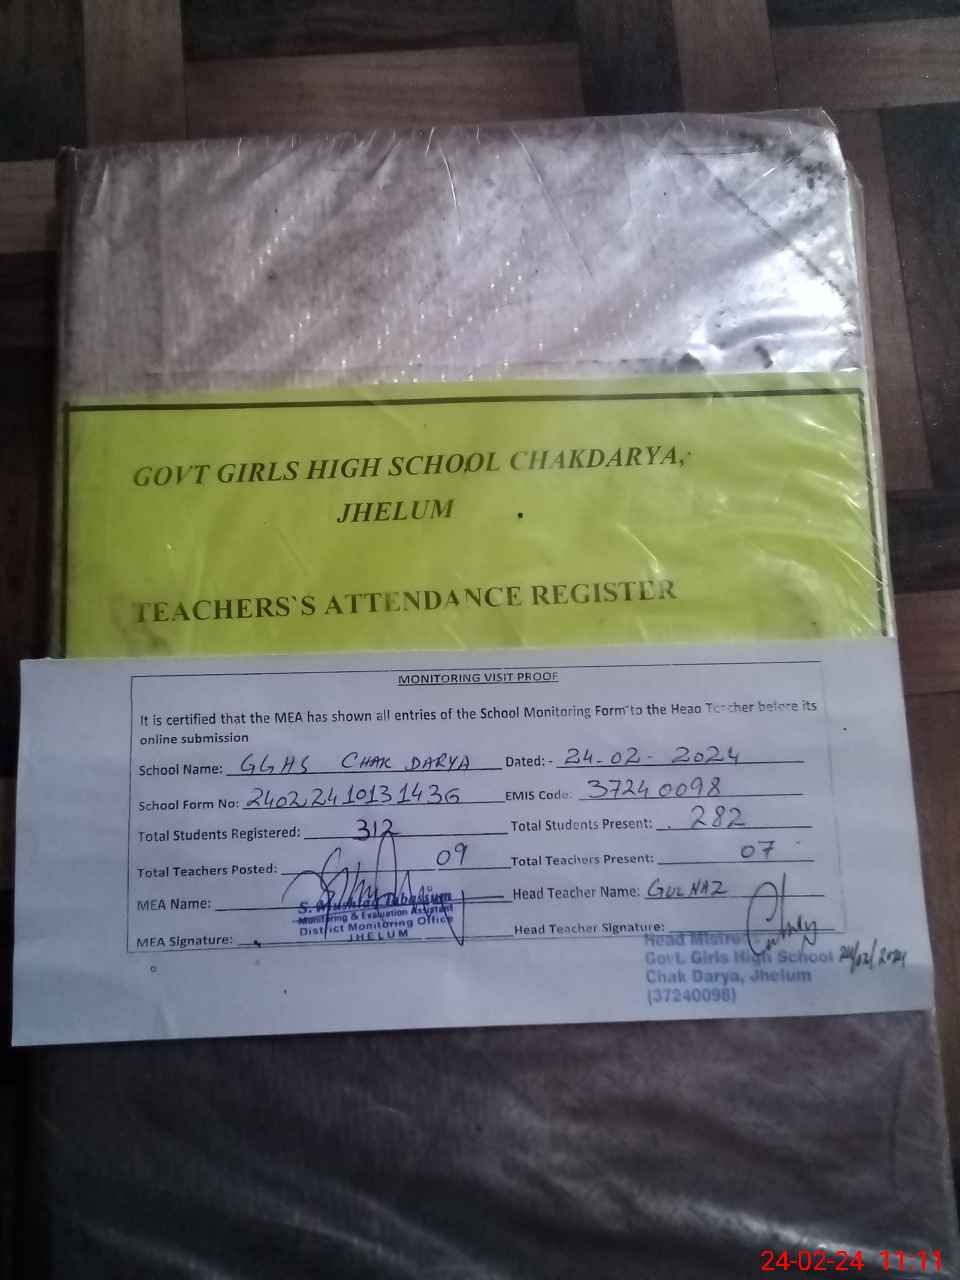 GOVT GIRLS HIGH SCHOOL CHAKDARYA,
JHELUM
TEACHERS`S ATTENDANCE REGISTER
MONITORING VISIT PROOF
It is certified that the MEA has shown all entries of the School Monitoring Form to the Head Teacher before its
online submission
School Name: GGHS CHAK DARYA Dated: - 24-02-2024
School Form No: 24022410131436 EMIS Code: 37240098
Total Students Registered: 312 Total Students Present: 282
Total Teachers Posted: 09 Total Teachers Present: 07
MEA Name: Head Teacher Name: GULNAZ
Monitoring & Evaluation Assistant
District Monitoring Office
JHELUM
MEA Signature: Head Teacher Signature:
Head Mistre
Govt. Girls High School 24/02/2024
Chak Darya, Jhelum
(37240098)
24-02-24 11:11